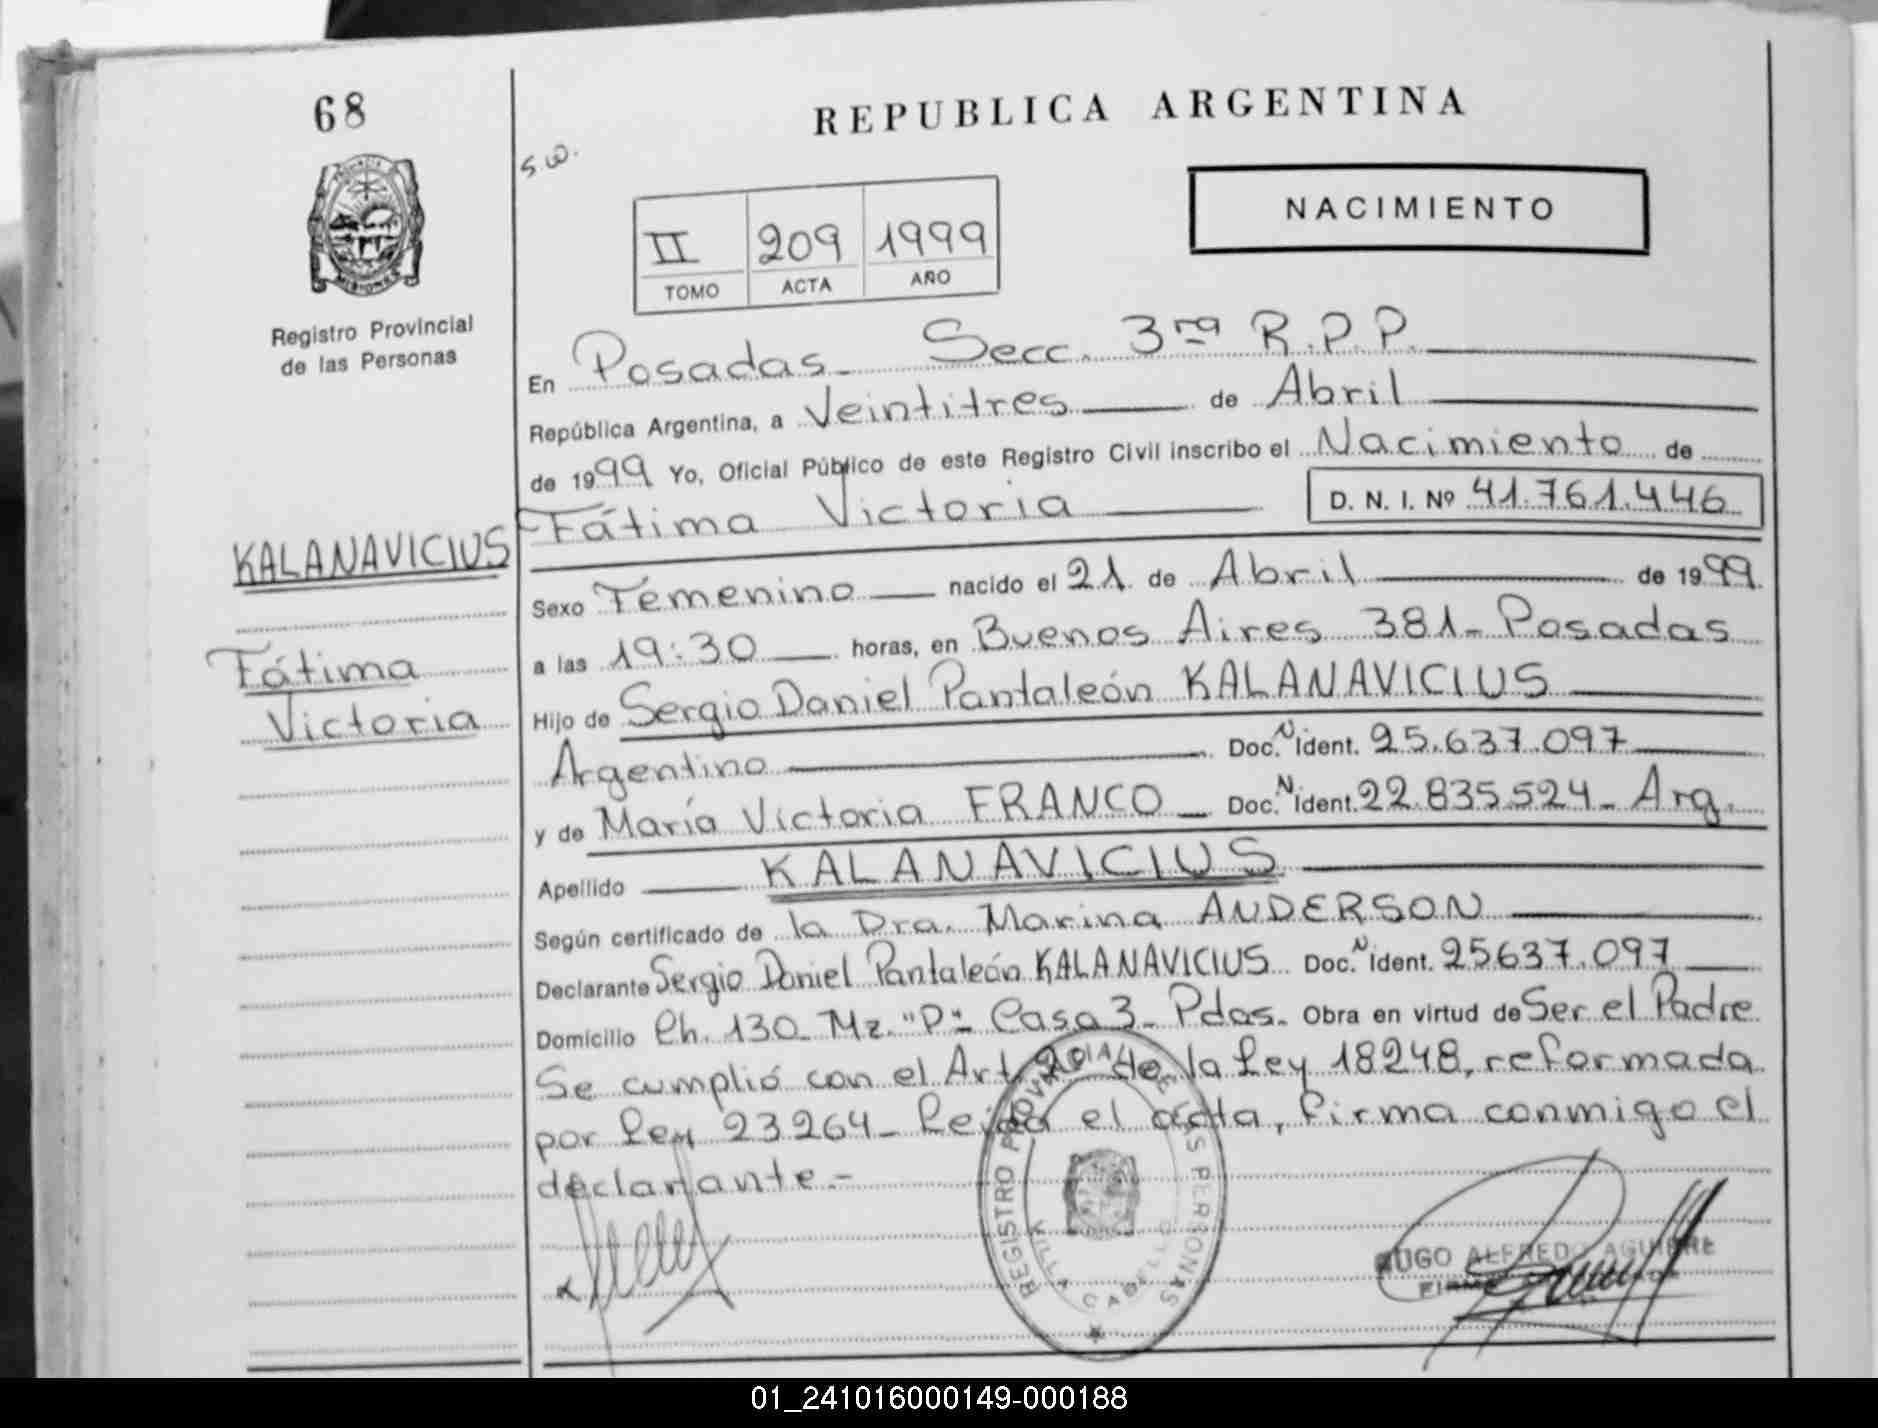 68
REPUBLICA ARGENTINA
S.W.
NACIMIENTO
II 209 1999
TOMO ACTA AÑO
Registro Provincial
de las Personas
En Posadas Secc. 3ra R.P.P.
República Argentina, a Veintitres de Abril
de 1999 Yo, Oficial Público de este Registro Civil inscribo el Nacimiento de
Fátima Victoria D. N. I. Nº 41.761.446
KALANAVICIUS
Fátima
Victoria
Sexo Femenino nacido el 21 de Abril de 1999.
a las 19:30 horas, en Buenos Aires 381 - Posadas
Hijo de Sergio Daniel Pantaleón KALANAVICIUS
Argentino Doc. N Ident. 25.637.097
y de María Victoria FRANCO Doc. N Ident. 22.835.524 - Arg.
Apellido KALANAVICIUS
Según certificado de la Dra. Marina ANDERSON
Declarante Sergio Daniel Pantaleón KALANAVICIUS Doc. N Ident. 25637.097
Domicilio Ch. 130 - Mz. "P" - Casa 3 - Pdas. Obra en virtud de Ser el Padre
Se cumplió con el Art. 20 de la Ley 18248, reformada
por Ley 23264 - Leída el acta, firma conmigo el
declarante.-
REGISTRO PROVINCIAL DE LAS PERSONAS
VILLA CABELLO
HUGO ALFREDO AGUIRRE
01_241016000149-000188